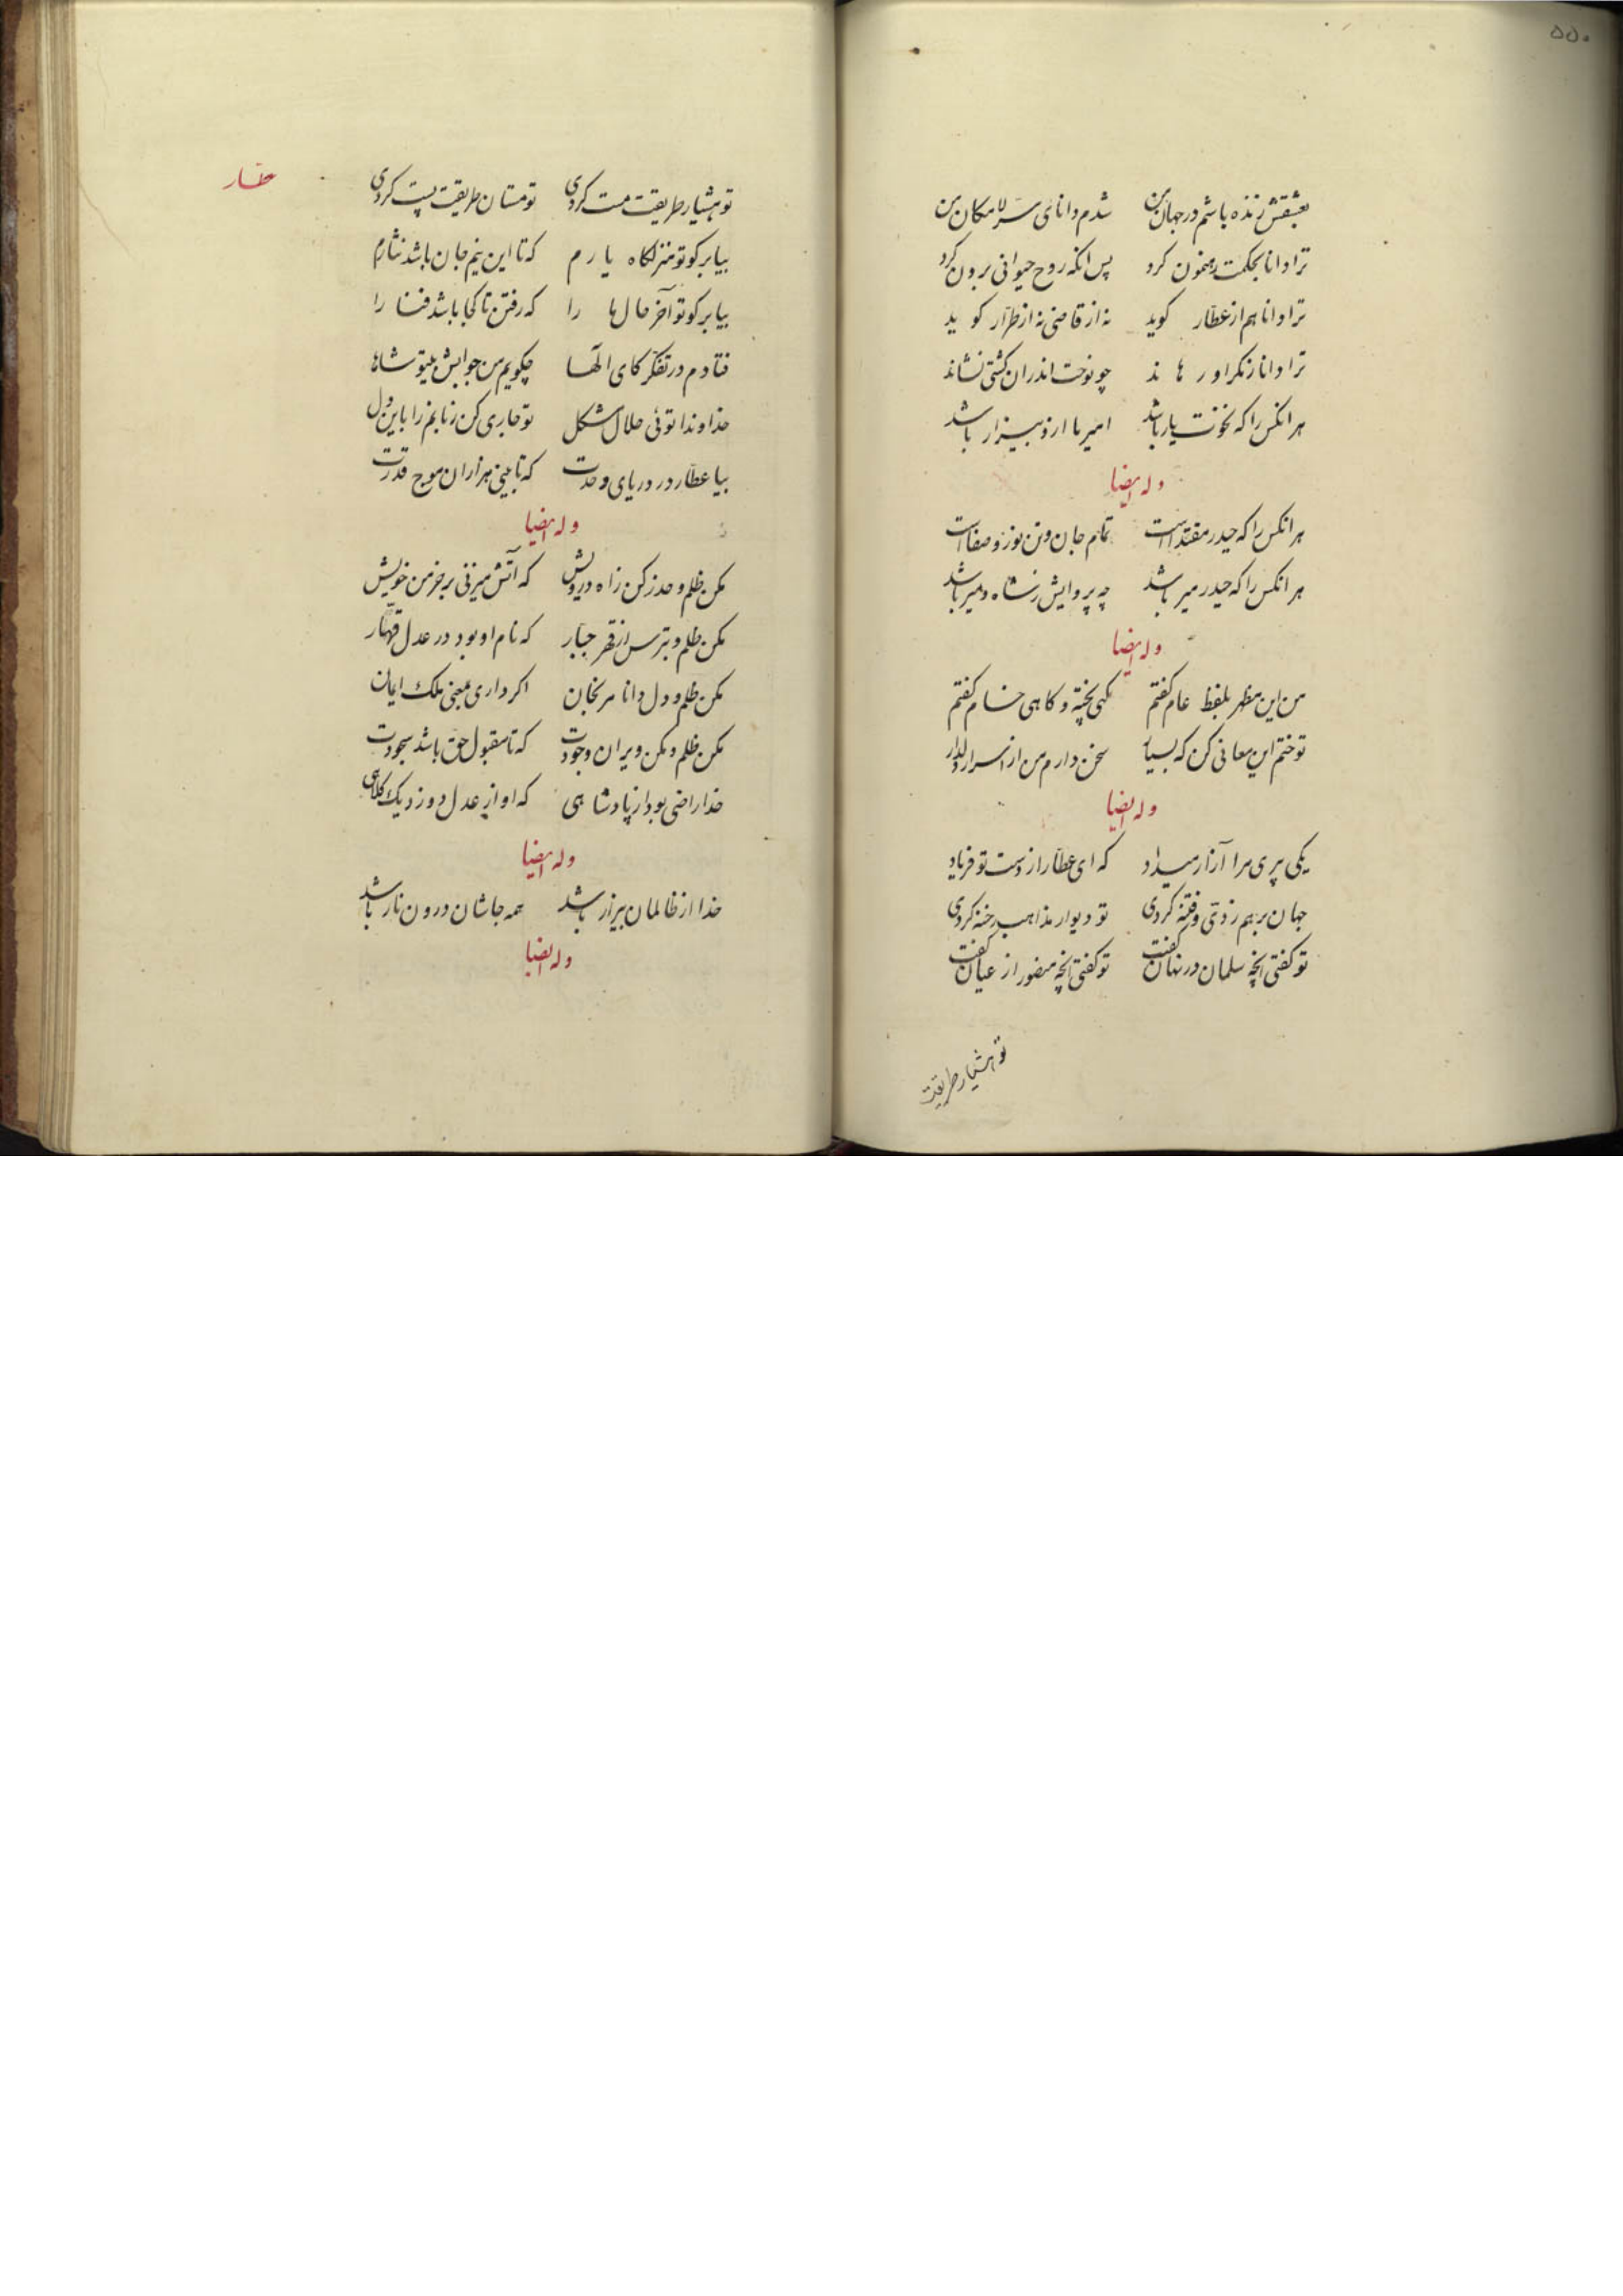 ۵۵۰
بعشقش زنده باشم در جهان من شدم دانای سرّ لامکان من
ترا دانا بحکمت رهنمون کرد پس انکه روح حیوانی برون کرد
ترا دانا هم از عطّار کوید نه از قاضی نه از طرّار کوید
ترا دانا ز نکر او رهاند چو نوحت اندران کشتی نشاند
هر انکس را که نخوت یار باشد امیر ما ازو بیزار باشد
وله ایضا
هر انکس را که حیدر مقتدا است تمام جان و تن نور و صفا است
هر انکس را که حیدر میر باشد چه پروایش ز شاه و میر باشد
وله ایضا
من این مظهر بلفظ عام کفتم کهی پخته و کاهی خام کفتم
تو ختم این معانی کن که بسیار سخن دارم من از اسرار دلدار
وله ایضا
یکی پیری مرا آزار میداد که ای عطّار از دست تو فریاد
جهان برهم زدی و فتنه کردی تو دیوار مذاهب رخنه کردی
تو کفتی انچه سلمان در نهان کفت تو کفتی انچه منصور از عیان کفت
تو هشیار طریقت
عطار
تو هشیار طریقت مست کردی تو مستان طریقت پست کردی
بیا برکو تو منزلکاه یارم که تا این نیم جان باشد نثارم
بیا برکو تو آخر حال ها را که رفتن تا کجا باشد فنا را
فتادم در تفکّر کای الٓها چکویم من جوابش بیتو شاها
خداوندا توئی حلال مشکل تو جاری کن زبانم را باین دل
بیا عطّار در دریای وحدت که تا بینی هزاران موج قدرت
وله ایضا
مکن ظلم و حذر کن ز اه درویش که آتش میزنی بر خرمن خویش
مکن ظلم و بترس از قهر جبّار که نام او بود در عدل قهّار
مکن ظلم و دل دانا مرنجان اکر داری بمعنی ملک ایمان
مکن ظلم و مکن ویران وجودت که تا مقبول حق باشد سجودت
خدا راضی بود از پادشاهی که او از عدل دوزد یک کلاهی
وله ایضا
خدا از ظالمان بیزار باشد همه جاشان درون نار باشد
وله ایضا